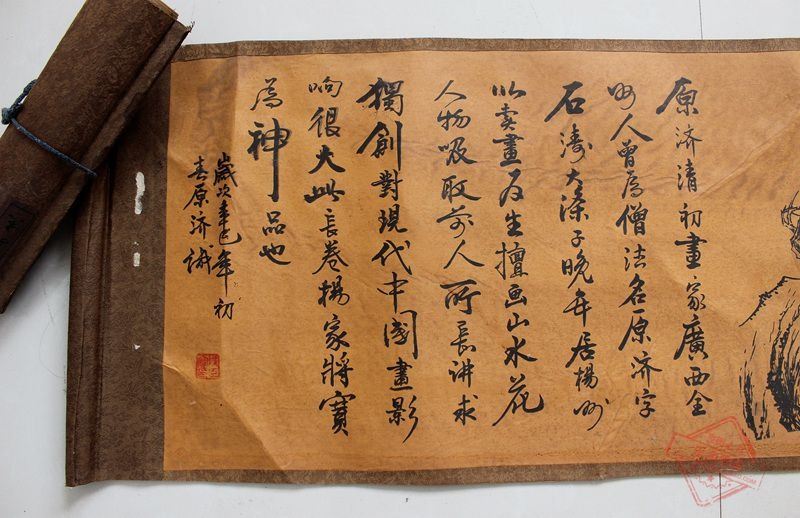 原济清初畫家廣西全
州人曾為僧法名原济字
石涛大涤子晚年居楊州
以卖畫为生擅画山水花
人物吸取前人所長讲求
獨創對現代中國畫影
响很大此長卷楊家將實
為神品也
歲次辛巳年初
春原济誠